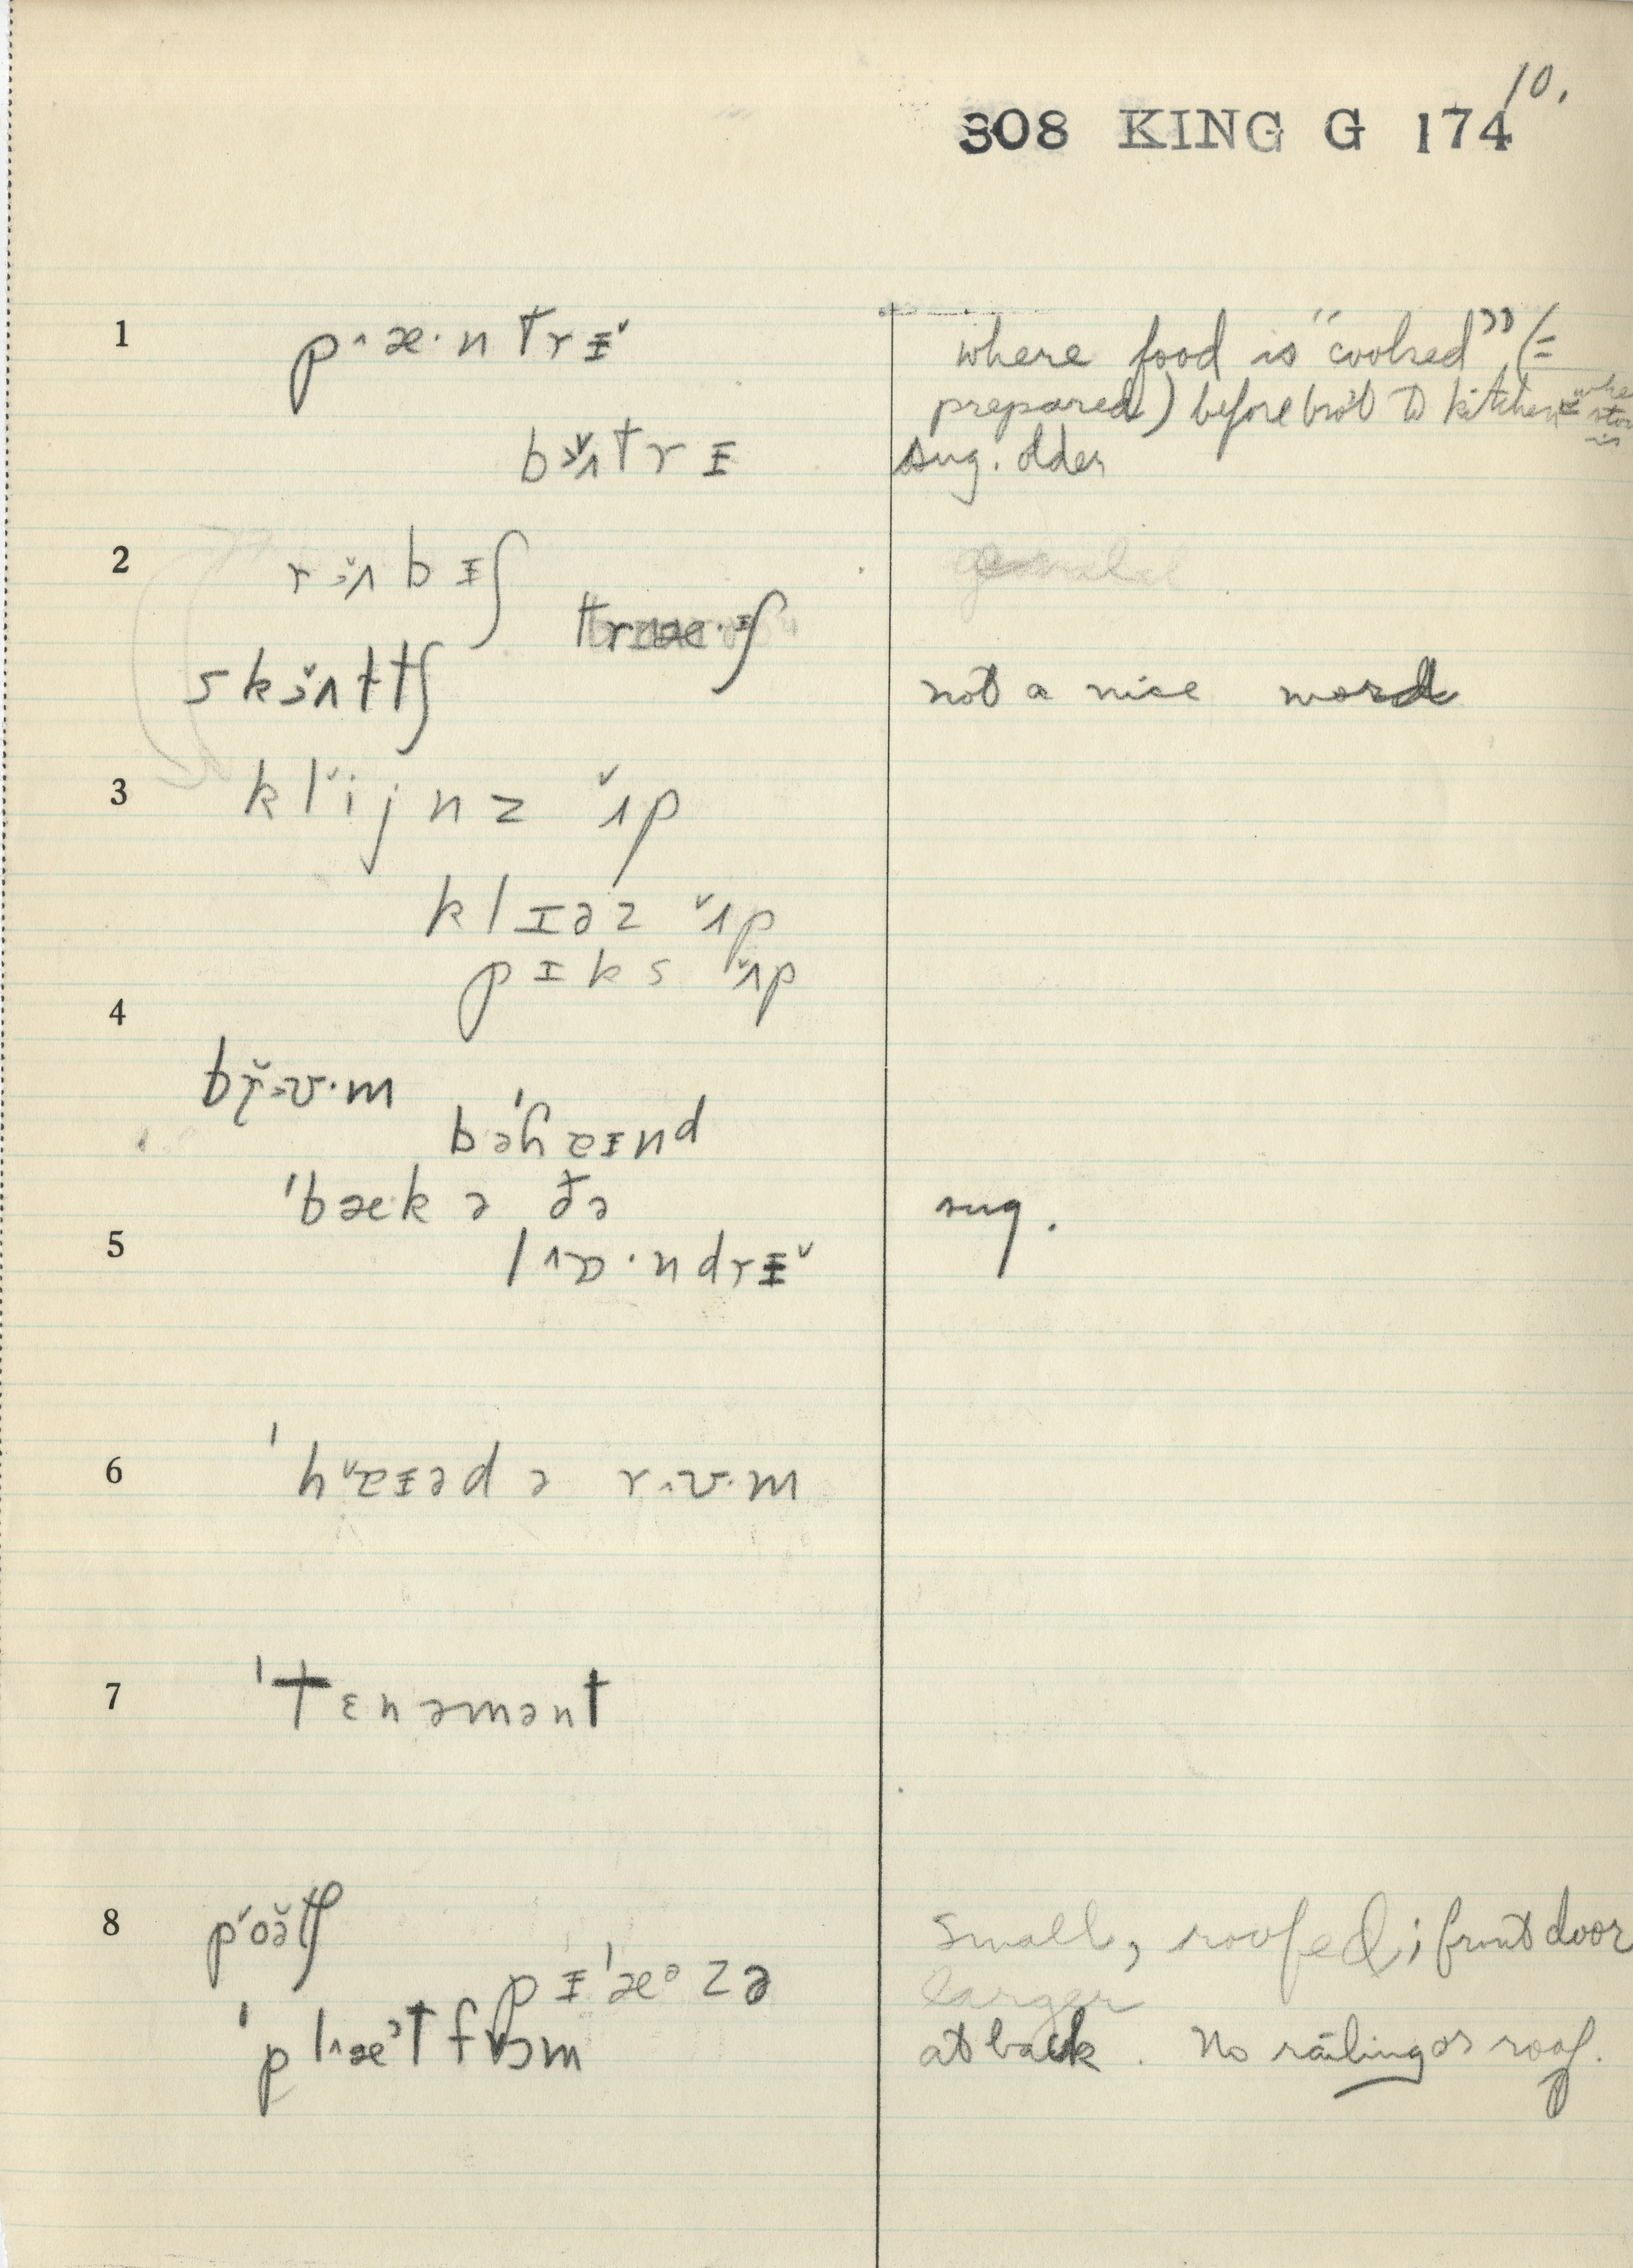 10.
308 KING G 174
1 p˄æ·ntrɪ̵˅ where food is "cooked" (=
prepared) before bro't to kitchen
bɜ˅ʌtrɪ̵ sug. older
2 rɜ˅ʌbɪ̵ʃ
træ·ɪ̵ʃ
skɜ˅ʌttʃ not a nice word
3 kl˅ijnz ˅ʌp
klɪəz ˅ʌp
pɪks ˅ʌp
4
br̥˅ʊ·m
bəˈɦaɪ̵nd
ˈbæk ə ðə sug.
5 l˄ɒ·ndrɪ̵˅
6 ˈh˅aɪ̵əd ə r˄ʊ·m
7 ˈtɛnəmənt
8 p˅oə̆tʃ small, roofed; front door
pɪ̵ˈæᵊzə larger
ˈpl˄æᵊtfɔəm at back. No railing or roof.